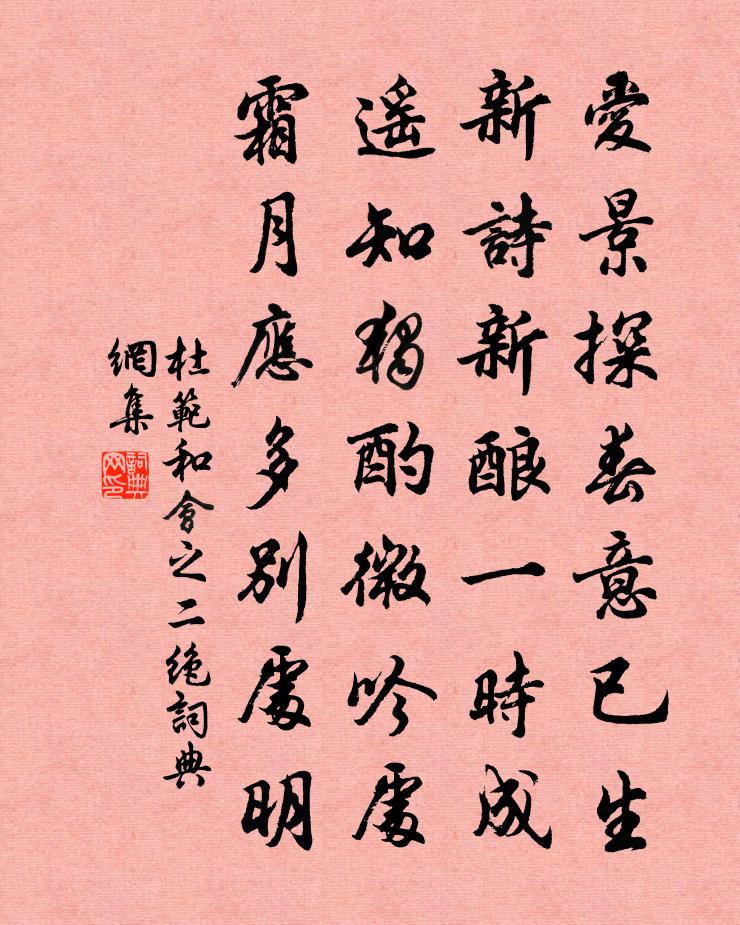 愛景探春意已生
新詩新酿一時成
遥知獨酌微吟處
霜月應多别處明
杜範和會之二绝詞典
網集
詞典網印